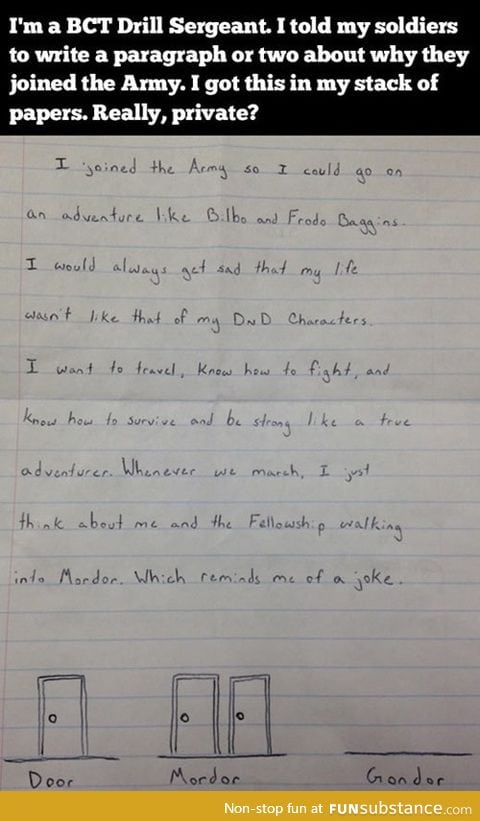 I'm a BCT Drill Sergeant. I told my soldiers
to write a paragraph or two about why they
joined the Army. I got this in my stack of
papers. Really, private?
I joined the Army so I could go on
an adventure like Bilbo and Frodo Baggins.
I would always get sad that my life
wasn't like that of my DND Characters.
I want to travel, know how to fight, and
know how to survive and be strong like a true
adventurer. Whenever we march, I just
think about me and the Fellowship walking
into Mordor. Which reminds me of a joke.
Door Mordor Gondor
Non-stop fun at FUNsubstance.com